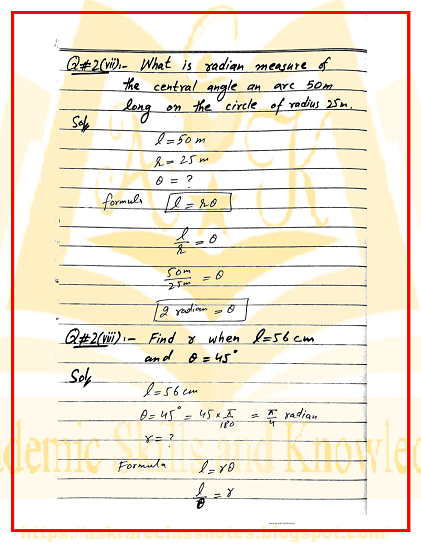 Q#2(vii):- What is radian measure of
the central angle an arc 50m
long on the circle of radius 25m.
Sol:
l = 50 m
r = 25 m
θ = ?
formula l = rθ
l/r = θ
50m/25m = θ
2 radian = θ
Q#2(viii):- Find r when l=56 cm
and θ = 45°
Sol:
l = 56 cm
θ = 45° = 45 × π/180 = π/4 radian
r = ?
Formula l = rθ
l/θ = r
A K
Academic Skills and Knowledge
https://askrareclassnotes.blogspot.com/